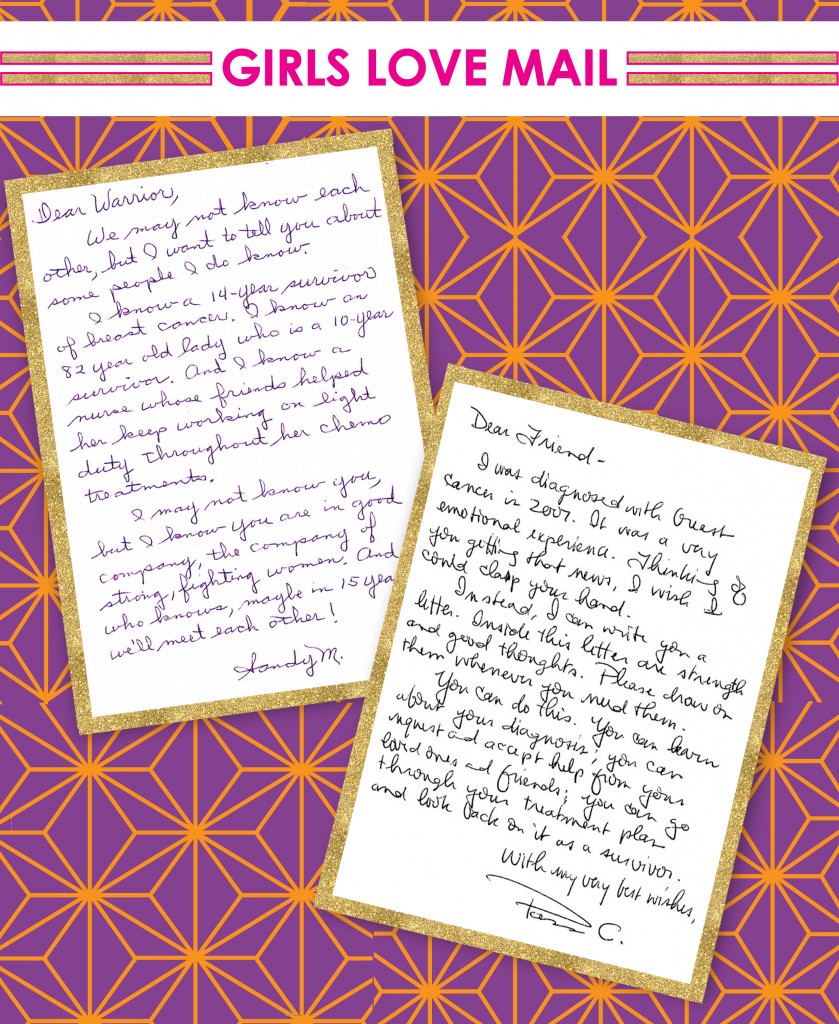 GIRLS LOVE MAIL
Dear Warrior,
We may not know each
other, but I want to tell you about
some people I do know.
I know a 14-year survivor
of breast cancer. I know an
82 year old lady who is a 10-year
survivor. And I know a
nurse whose friends helped
her keep working on light
duty throughout her chemo
treatments.
I may not know you,
but I know you are in good
company, the company of
strong, fighting women. And
who knows, maybe in 15 year
we'll meet each other!
Sandy M.
Dear Friend-
I was diagnosed with breast
cancer in 2007. It was a very
emotional experience. Thinking of
you getting that news, I wish I
could clasp your hand.
Instead, I can write you a
letter. Inside this letter are strength
and good thoughts. Please draw on
them whenever you need them.
You can do this. You can learn
about your diagnosis; you can
request and accept help from your
loved ones and friends; you can go
through your treatment plan
and look back on it as a survivor.
With my very best wishes,
C.